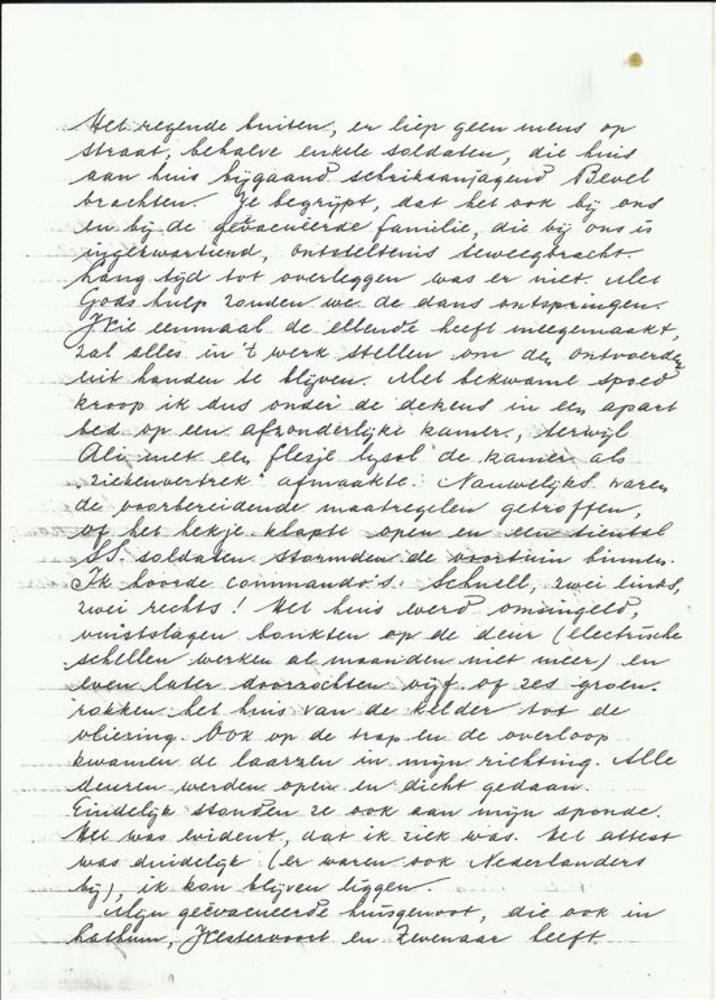 Het regende buiten, er liep geen mens op
straat, behalve enkele soldaten, die huis
aan huis bijgaand schrikaanjagend Bevel
brachten. Je begrijpt, dat het ook bij ons
en bij de geëvacueerde familie, die bij ons is
ingekwartierd, ontsteltenis teweegbracht.
Lang tijd tot overleggen was er niet. Met
Gods hulp zouden we de dans ontspringen.
Wie eenmaal de ellende heeft meegemaakt,
zal alles in 't werk stellen om de ontvoerders
uit handen te blijven. Met bekwame spoed
kroop ik dus onder de dekens in een apart
bed op een afzonderlijke kamer, terwijl
Ali met een flesje lysol de kamer als
"ziekenvertrek" afmaakte. Nauwelijks waren
de voorbereidende maatregelen getroffen,
of het hekje klapte open en een tiental
SS. soldaten stormden de voortuin binnen.
Ik hoorde commando's. Schnell, zwei links,
zwei rechts! Het huis werd omsingeld,
vuistslagen bonkten op de deur (electrische
schellen werken al maanden niet meer) en
even later doorzochten vijf of zes groen-
rokken het huis van de kelder tot de
vliering. Ook op de trap en de overloop
kwamen de laarzen in mijn richting. Alle
deuren werden open en dicht gedaan.
Eindelijk stonden ze ook aan mijn sponde.
Het was evident, dat ik ziek was. Het attest
was duidelijk (er waren ook Nederlanders
bij), ik kon blijven liggen.
Mijn geëvacueerde huisgenoot, die ook in
Lathum, Westervoort en Zevenaar heeft